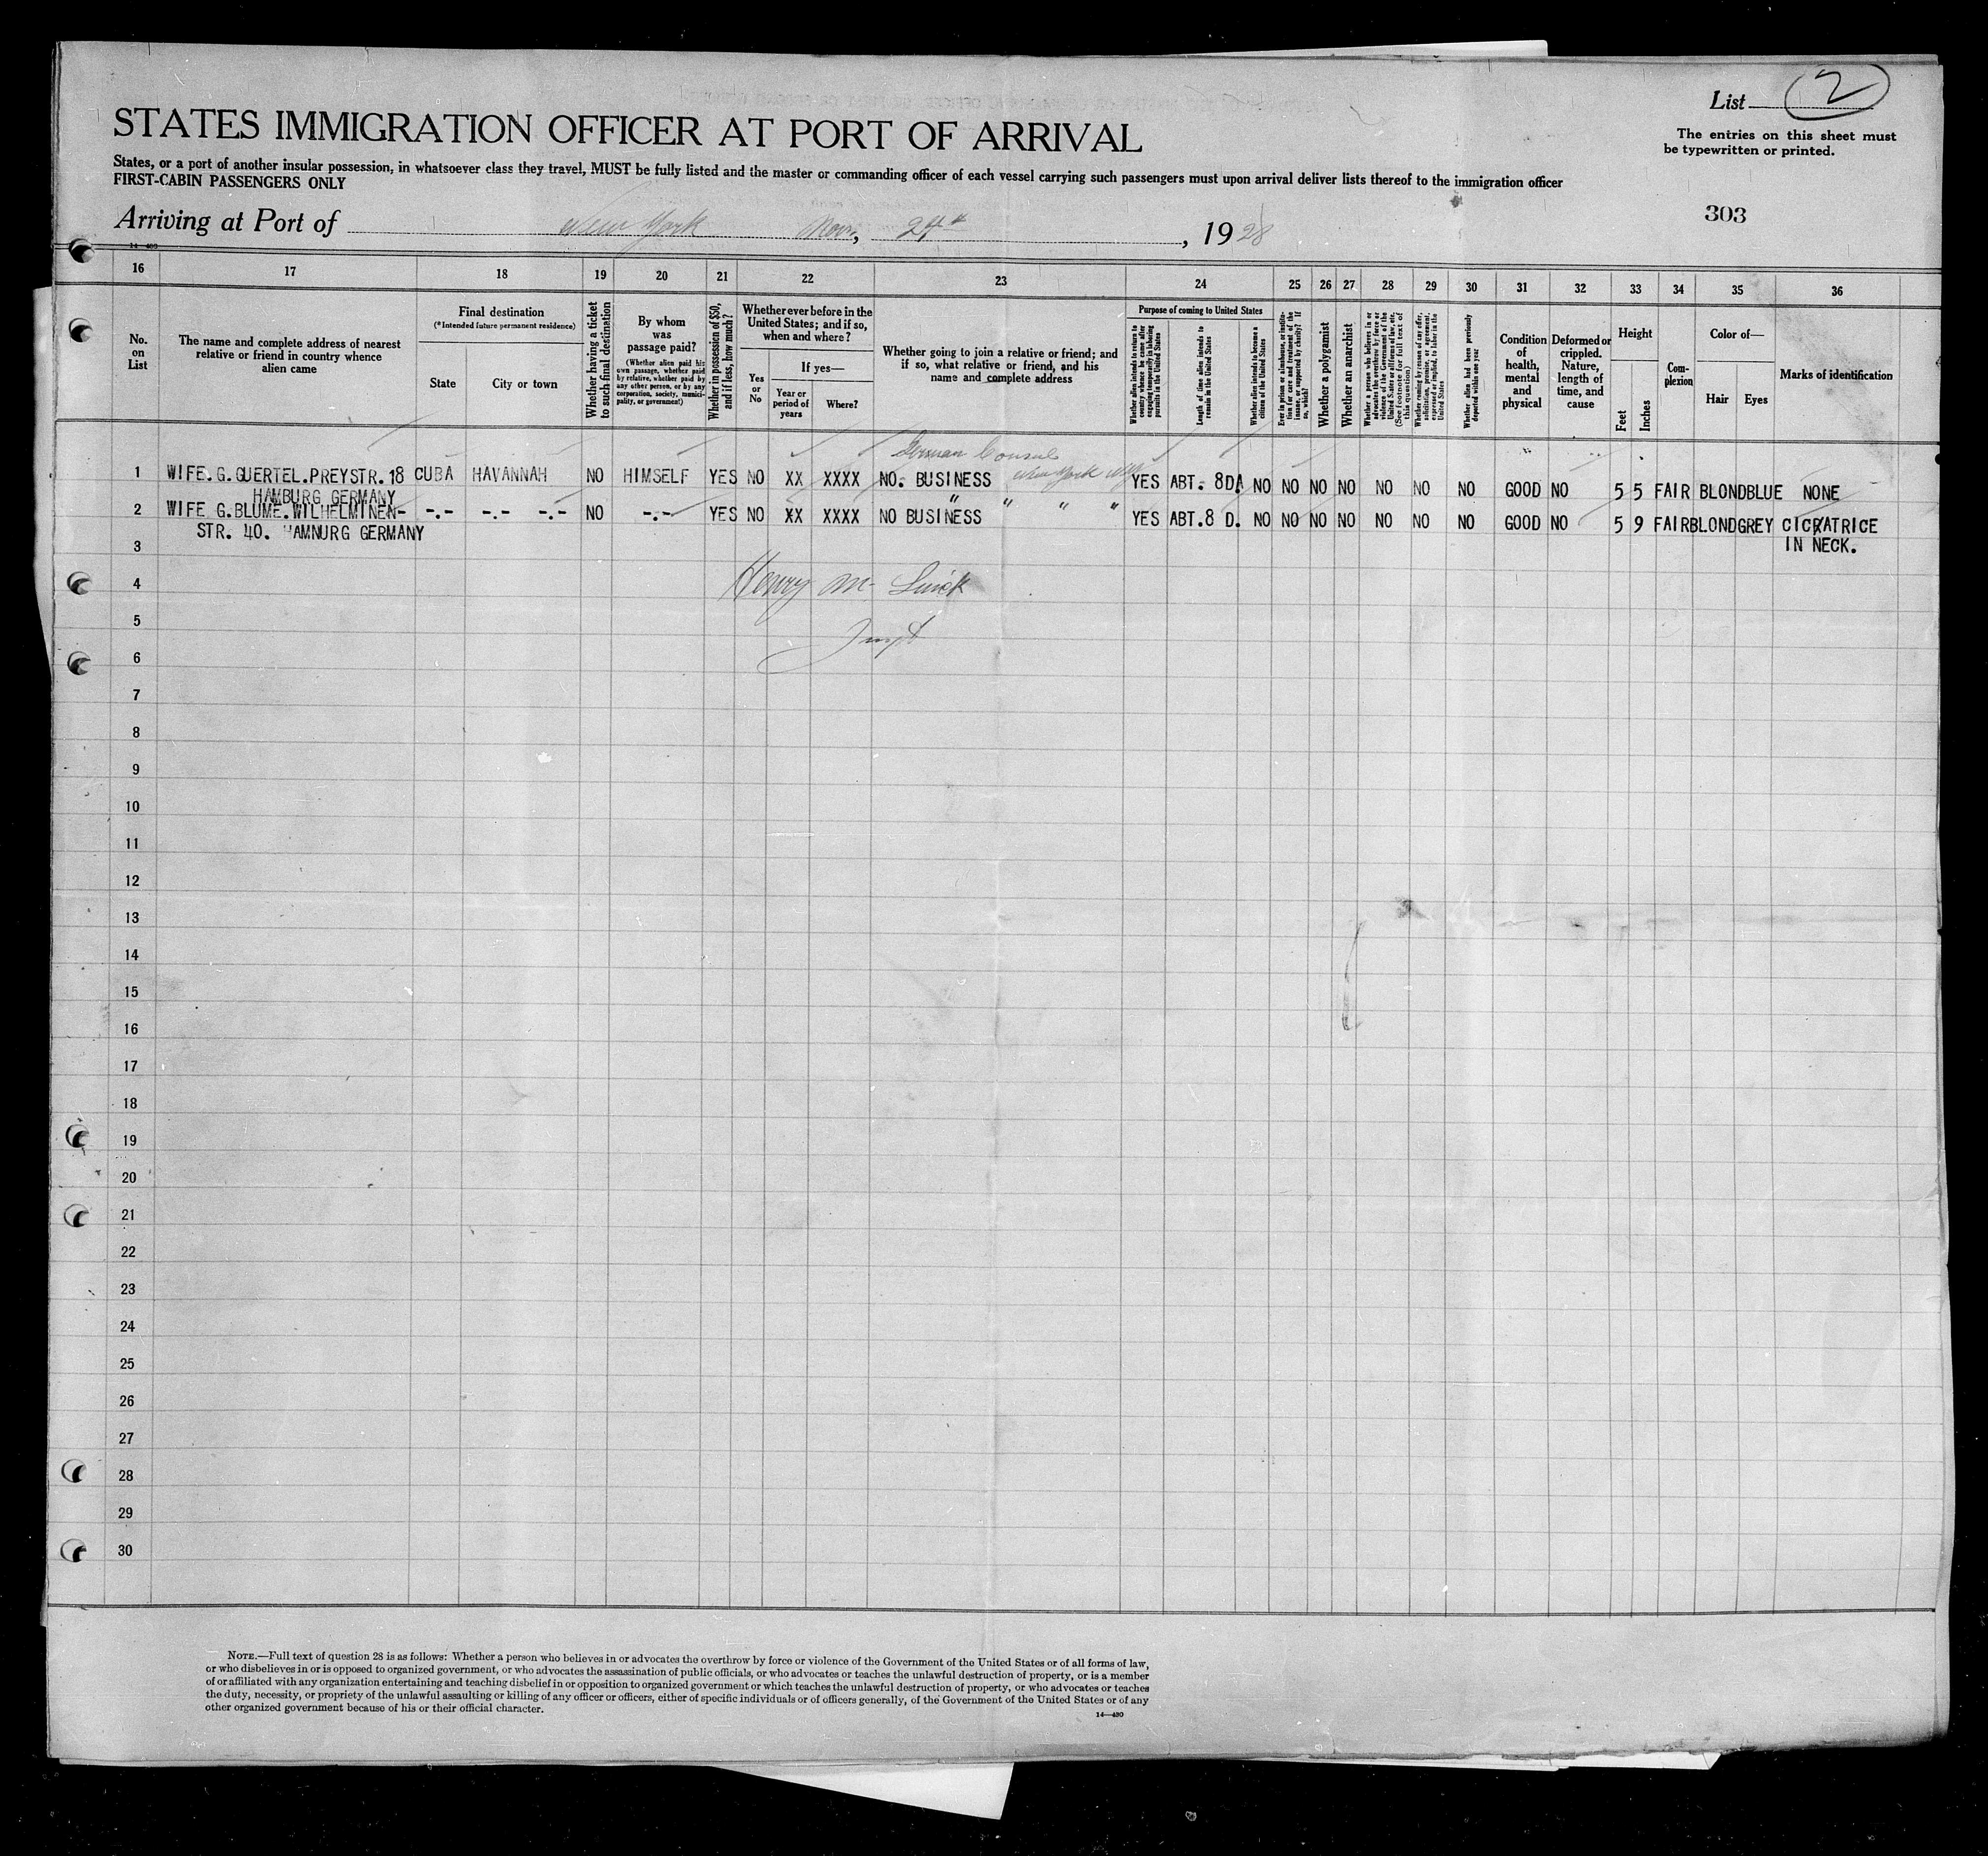 List 2
The entries on this sheet must
be typewritten or printed.
STATES IMMIGRATION OFFICER AT PORT OF ARRIVAL
States, or a port of another insular possession, in whatsoever class they travel, MUST be fully listed and the master or commanding officer of each vessel carrying such passengers must upon arrival deliver lists thereof to the immigration officer
FIRST-CABIN PASSENGERS ONLY
303
Arriving at Port of New York Nov., 24th, 1928
14—480
16 17 18 19 20 21 22 23 24 25 26 27 28 29 30 31 32 33 34 35 36
No. on List
The name and complete address of nearest
relative or friend in country whence
alien came
Final destination
(*Intended future permanent residence)
State
City or town
Whether having a ticket
to such final destination
By whom
was
passage paid?
(Whether alien paid his
own passage, whether paid
by relative, whether paid by
any other person, or by any
corporation, society, munici-
pality, or government)
Whether in possession of $50,
and if less, how much?
Whether ever before in the
United States; and if so,
when and where?
Yes
or
No
If yes—
Year or
period of
years
Where?
Whether going to join a relative or friend; and
if so, what relative or friend, and his
name and complete address
Purpose of coming to United States
Whether alien intends to return to
country whence he came after
engaging temporarily in laboring
pursuits in the United States
Length of time alien intends to
remain in the United States
Whether alien intends to become a
citizen of the United States
Ever in prison or almshouse, or institu-
tion for care and treatment of the
insane, or supported by charity? If
so, which?
Whether a polygamist
Whether an anarchist
Whether a person who believes in or
advocates the overthrow by force or
violence of the Government of the
United States or all forms of law, etc.
(See footnote for full text of
this question)
Whether coming by reason of any offer,
solicitation, promise, or agreement,
expressed or implied, to labor in the
United States
Whether alien had been previously
deported within one year
Condition
of
health,
mental
and
physical
Deformed or
crippled.
Nature,
length of
time, and
cause
Height
Feet
Inches
Com-
plexion
Color of—
Hair
Eyes
Marks of identification
German Consul
1 WIFE.G.GUERTEL.PREYSTR.18 CUBA HAVANNAH NO HIMSELF YES NO XX XXXX NO. BUSINESS New York YES ABT. 8DA NO NO NO NO NO NO NO GOOD NO 5 5 FAIR BLOND BLUE NONE
HAMBURG GERMANY
2 WIFE G.BLUME.WILHELMINEN- -.- -.- -.- NO -.- YES NO XX XXXX NO BUSINESS " " " " YES ABT.8 D. NO NO NO NO NO NO NO GOOD NO 5 9 FAIR BLOND GREY CICRATRICE
STR. 40. HAMNURG GERMANY
IN NECK.
3
4 Henry M.
5
6
7
8
9
10
11
12
13
14
15
16
17
18
19
20
21
22
23
24
25
26
27
28
29
30
NOTE.—Full text of question 28 is as follows: Whether a person who believes in or advocates the overthrow by force or violence of the Government of the United States or of all forms of law,
or who disbelieves in or is opposed to organized government, or who advocates the assassination of public officials, or who advocates or teaches the unlawful destruction of property, or is a member
of or affiliated with any organization entertaining and teaching disbelief in or opposition to organized government or which teaches the unlawful destruction of property, or who advocates or teaches
the duty, necessity, or propriety of the unlawful assaulting or killing of any officer or officers, either of specific individuals or of officers generally, of the Government of the United States or of any
other organized government because of his or their official character.
14—480